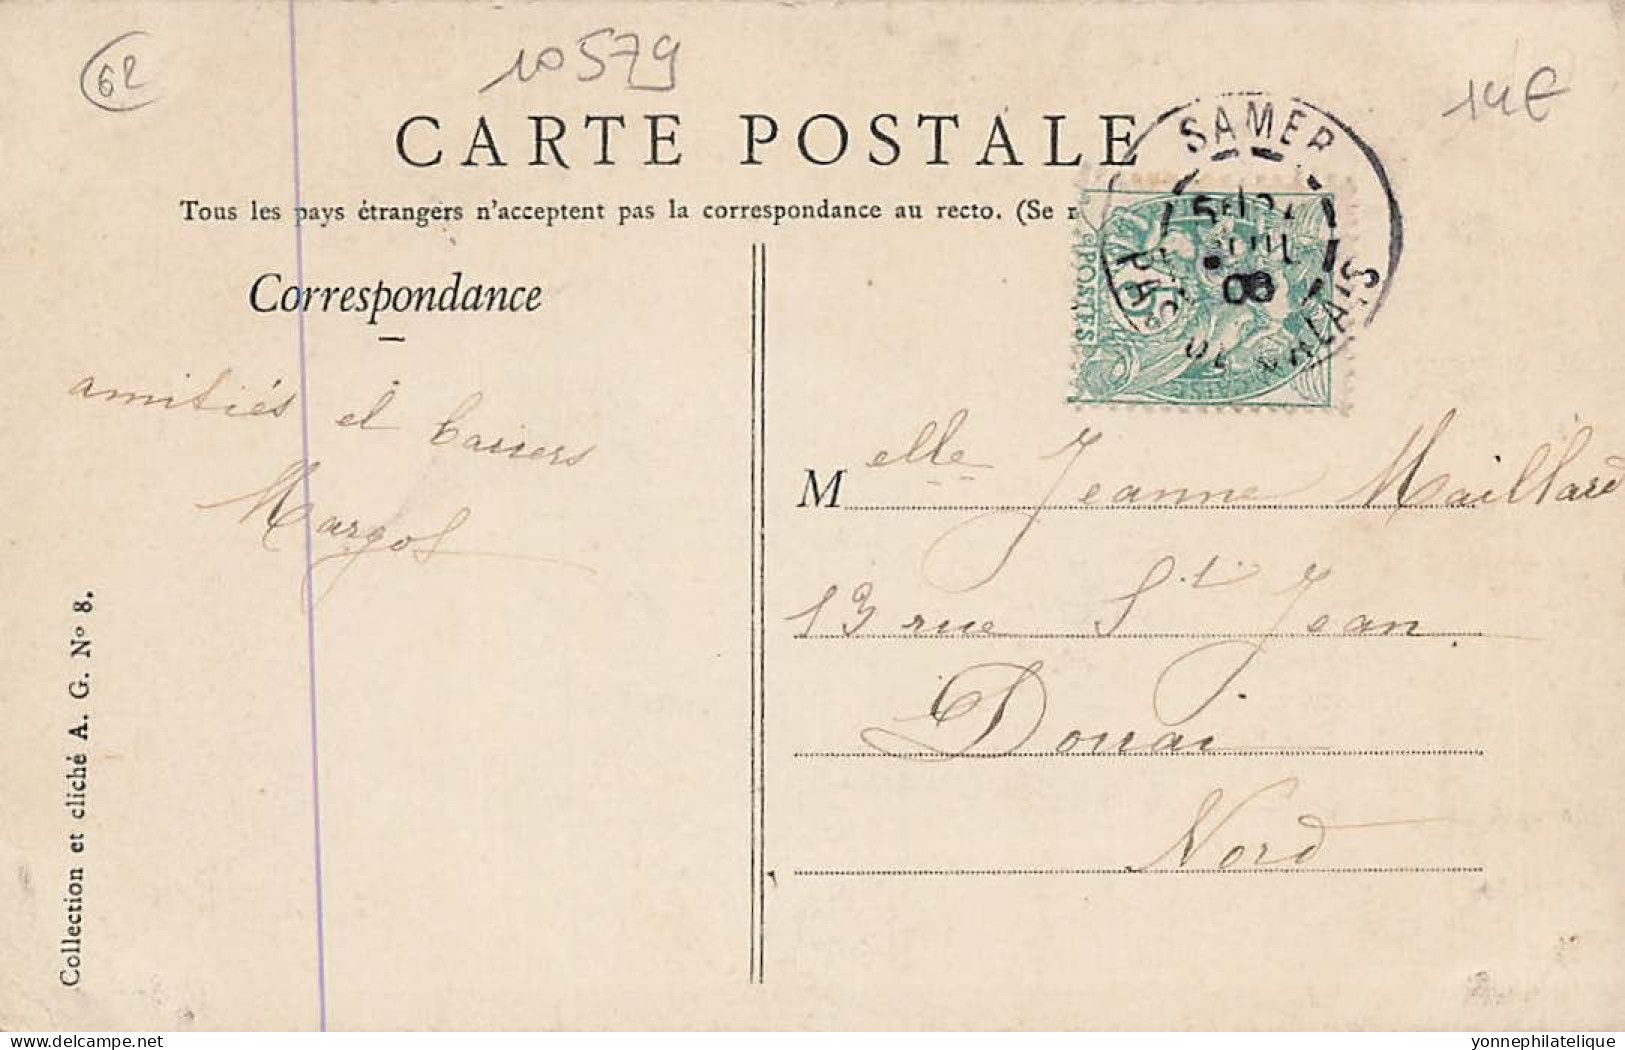 62
10579
14€
CARTE POSTALE
Tous les pays étrangers n'acceptent pas la correspondance au recto. (Se
SAMER
PAS DE CALAIS
08
POSTES
Correspondance
amitiés et baisers
Margot
Melle Jeanne Maillard
13 rue St Jean
Douai
Nord
Collection et cliché A. G. Nº 8.
delcampe.net
yonnephilatelique